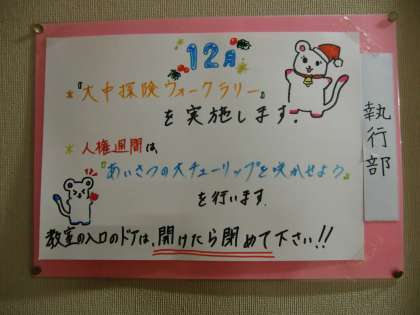 12月
*『大中探険ウォークラリー』
を実施します.
* 人権週間は、
『あいさつの大チューリップを咲かせよう』
を行います.
教室の入口のドアは、開けたら閉めて下さい!!
執行部